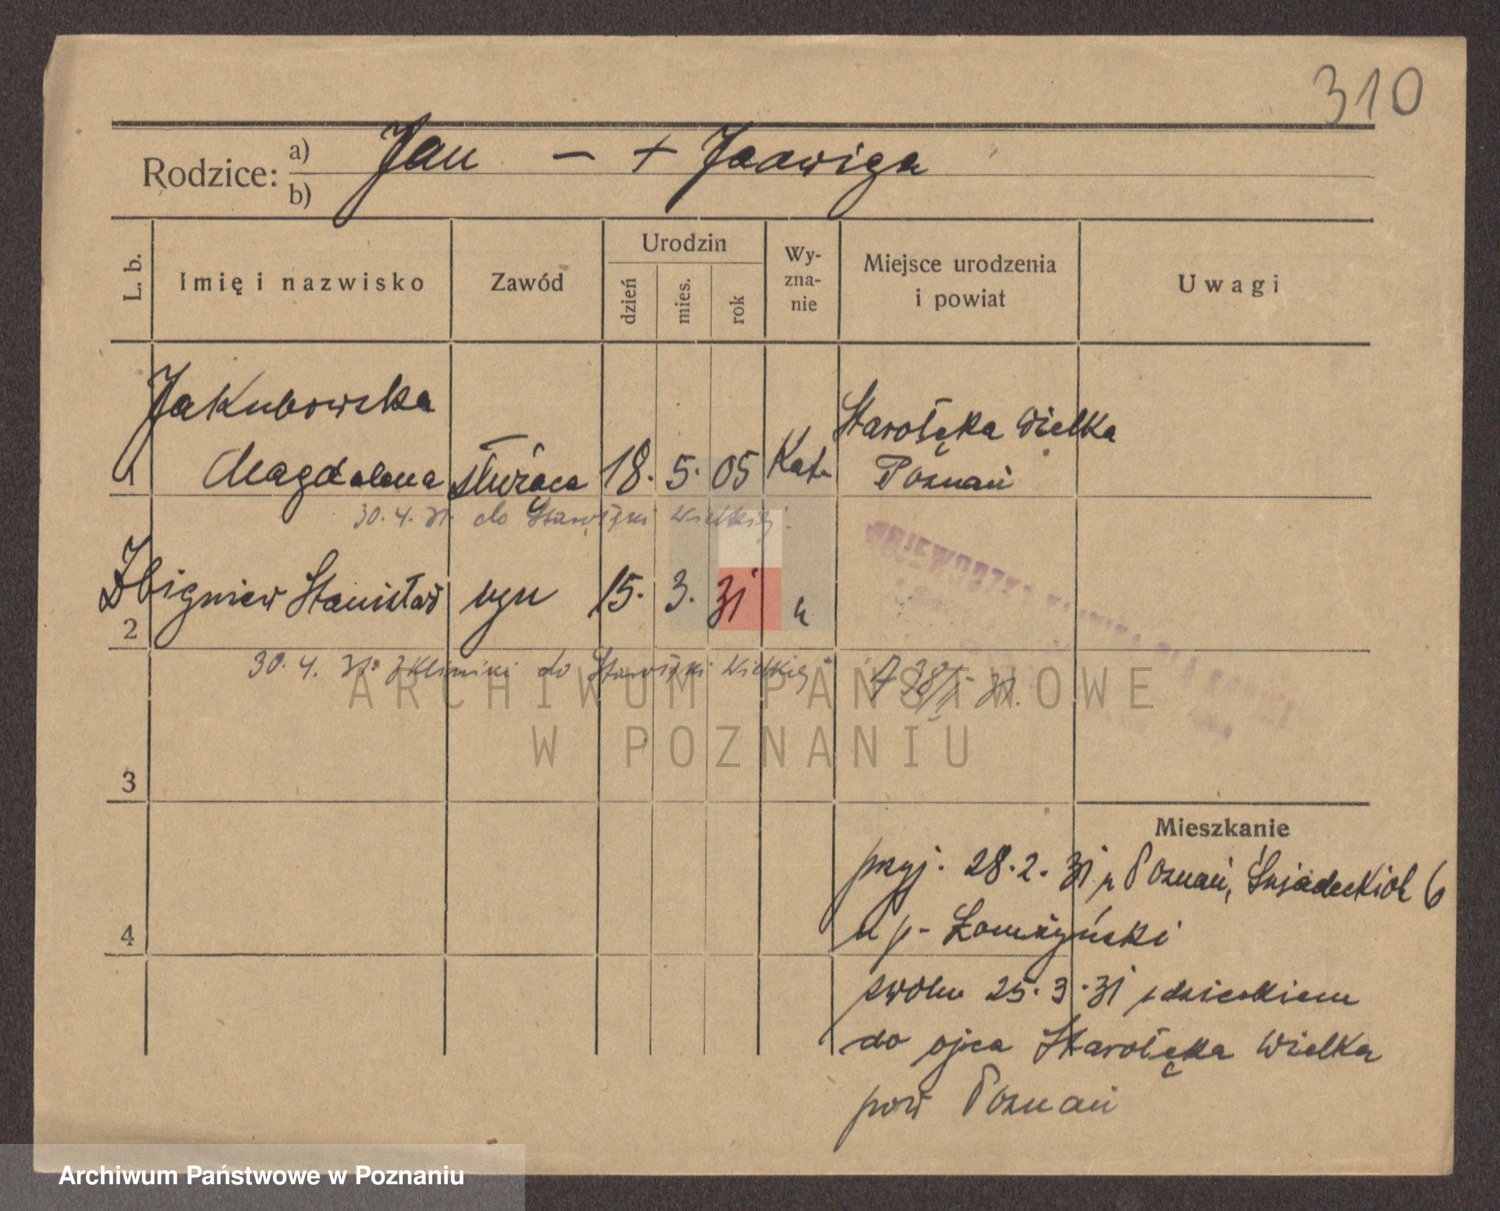 310
Rodzice: a) b) Jan — + Jadwiga
L. b.
Imię i nazwisko
Zawód
Urodzin
dzień
mies.
rok
Wy-
zna-
nie
Miejsce urodzenia
i powiat
Uwagi
Jakubowska Starołęka Wielka
1 Magdalena służąca 18. 5. 05 Kat. Poznań
30. 4. 31. do Starołęki Wielkiej
2 Zbigniew Stanisław syn 15. 3. 31
30. 4. 31. z kliniki do Starołęki Wielkiej
ARCHIWUM PAŃSTWOWE
W POZNANIU
3
Mieszkanie
przyj. 28. 2. 31 z Poznań, Śniadeckich 6
4
u p. Łomżyński
zwoln. 25. 3. 31 z dzieckiem
do ojca Starołęka Wielka
pow Poznań
Archiwum Państwowe w Poznaniu